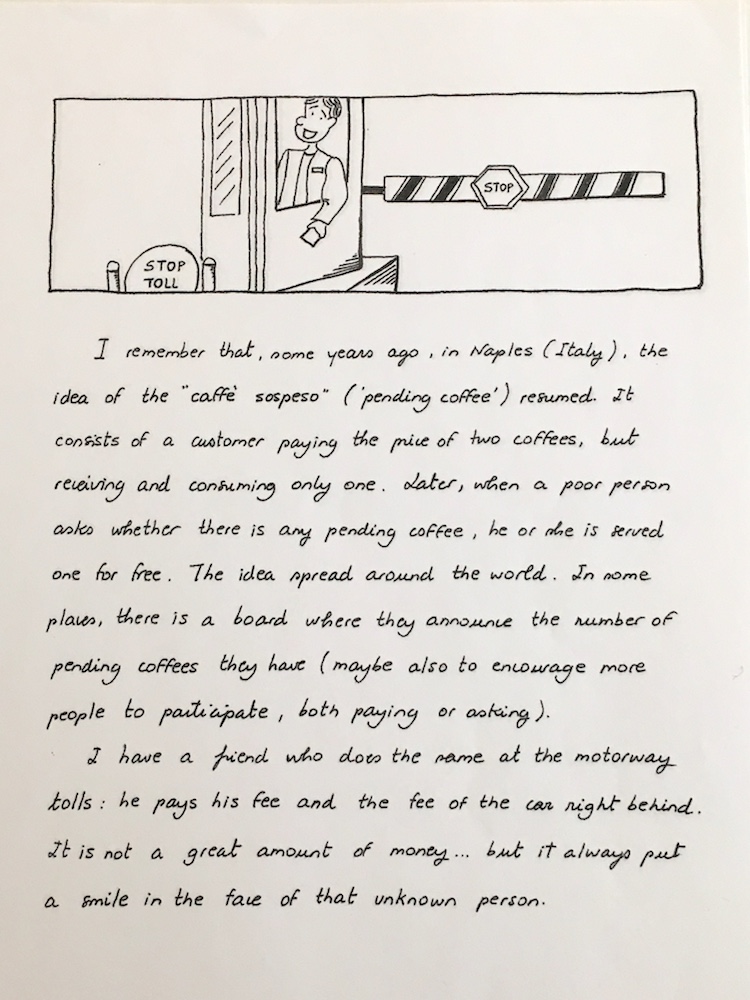 STOP
STOP
TOLL
I remember that, some years ago, in Naples (Italy), the
idea of the "caffè sospeso" ('pending coffee') resumed. It
consists of a customer paying the price of two coffees, but
receiving and consuming only one. Later, when a poor person
asks whether there is any pending coffee, he or she is served
one for free. The idea spread around the world. In some
places, there is a board where they announce the number of
pending coffees they have (maybe also to encourage more
people to participate, both paying or asking).
I have a friend who does the same at the motorway
tolls: he pays his fee and the fee of the car right behind.
It is not a great amount of money... but it always put
a smile in the face of that unknown person.